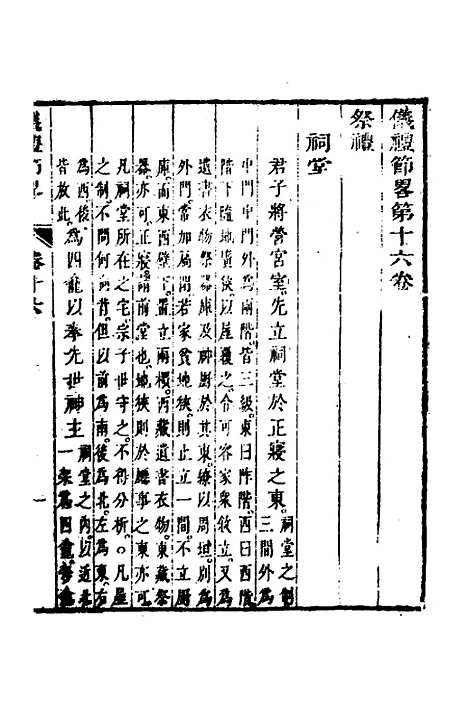 儀禮節畧第十六卷
祭禮
祠堂
君子將營宮室先立祠堂於正寢之東祠堂之制三間外爲
中門中門外爲兩階皆三級東曰阼階西曰西階
階下隨地廣狹以屋覆之令可容家衆敘立又爲
遺書衣物祭器庫及神廚於其東繚以周垣別爲
外門常加扃閉若家貧地狹則止立一間不立廚
庫而東西壁下置立兩櫃西藏遺書衣物東藏祭
器亦可正寢謂前堂也地狹則於廳事之東亦可
凡祠堂所在之宅宗子世守之不得分析○凡屋
之制不問何向背但以前爲南後爲北左爲東右
爲西後皆放此
爲四龕以奉先世神主祠堂之內以近北一架爲四龕
卷十六
一